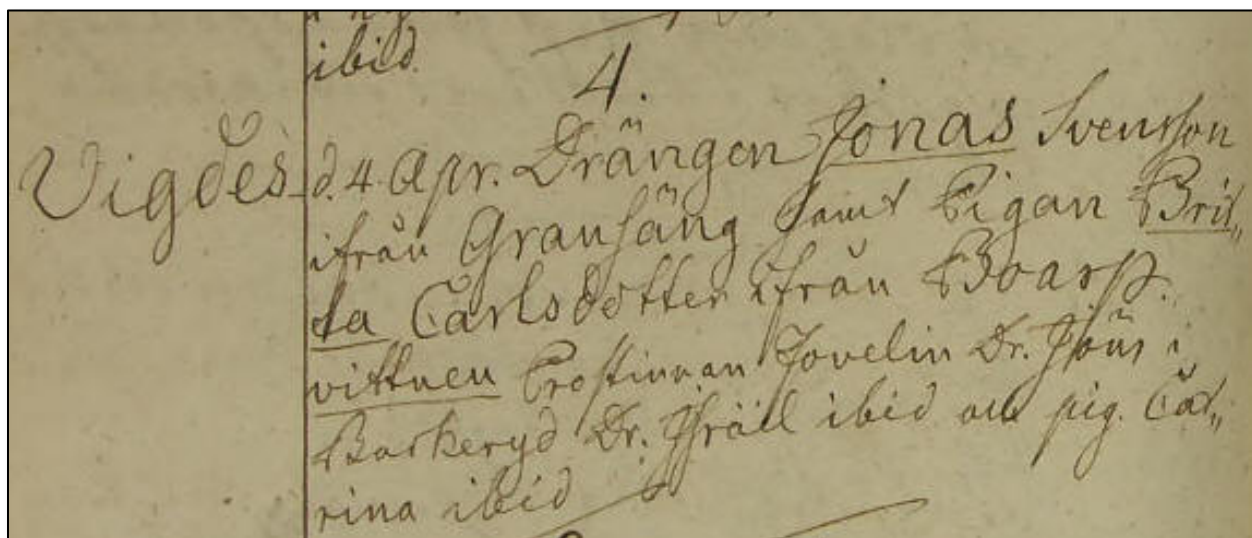 ibid.
4.
Vigdes d. 4. Apr. Drängen Jonas Svensson
ifrån Gransäng samt Pigan Brit„
ta Carlsdotter ifrån Boarp.
vittnen Prostinnan Jovelin Dr. Jöns i
Barkeryd Dr. Israël ibid och pig. Cat„
rina ibid